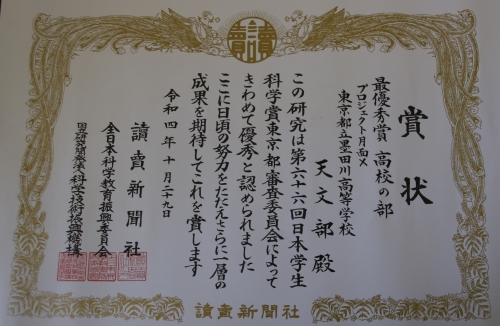 賞状
最優秀賞 高校の部
プロジェクト月面X
東京都立墨田川高等学校
天文部殿
この研究は第六十六回日本学生
科学賞東京都審査委員会によって
きわめて優秀と認められました
ここに日頃の努力をたたえさらに一層の
成果を期待してこれを賞します
令和四年十月二十九日
讀賣新聞社
全日本科学教育振興委員会
国立研究開発法人科学技術振興機構
讀賣新聞社